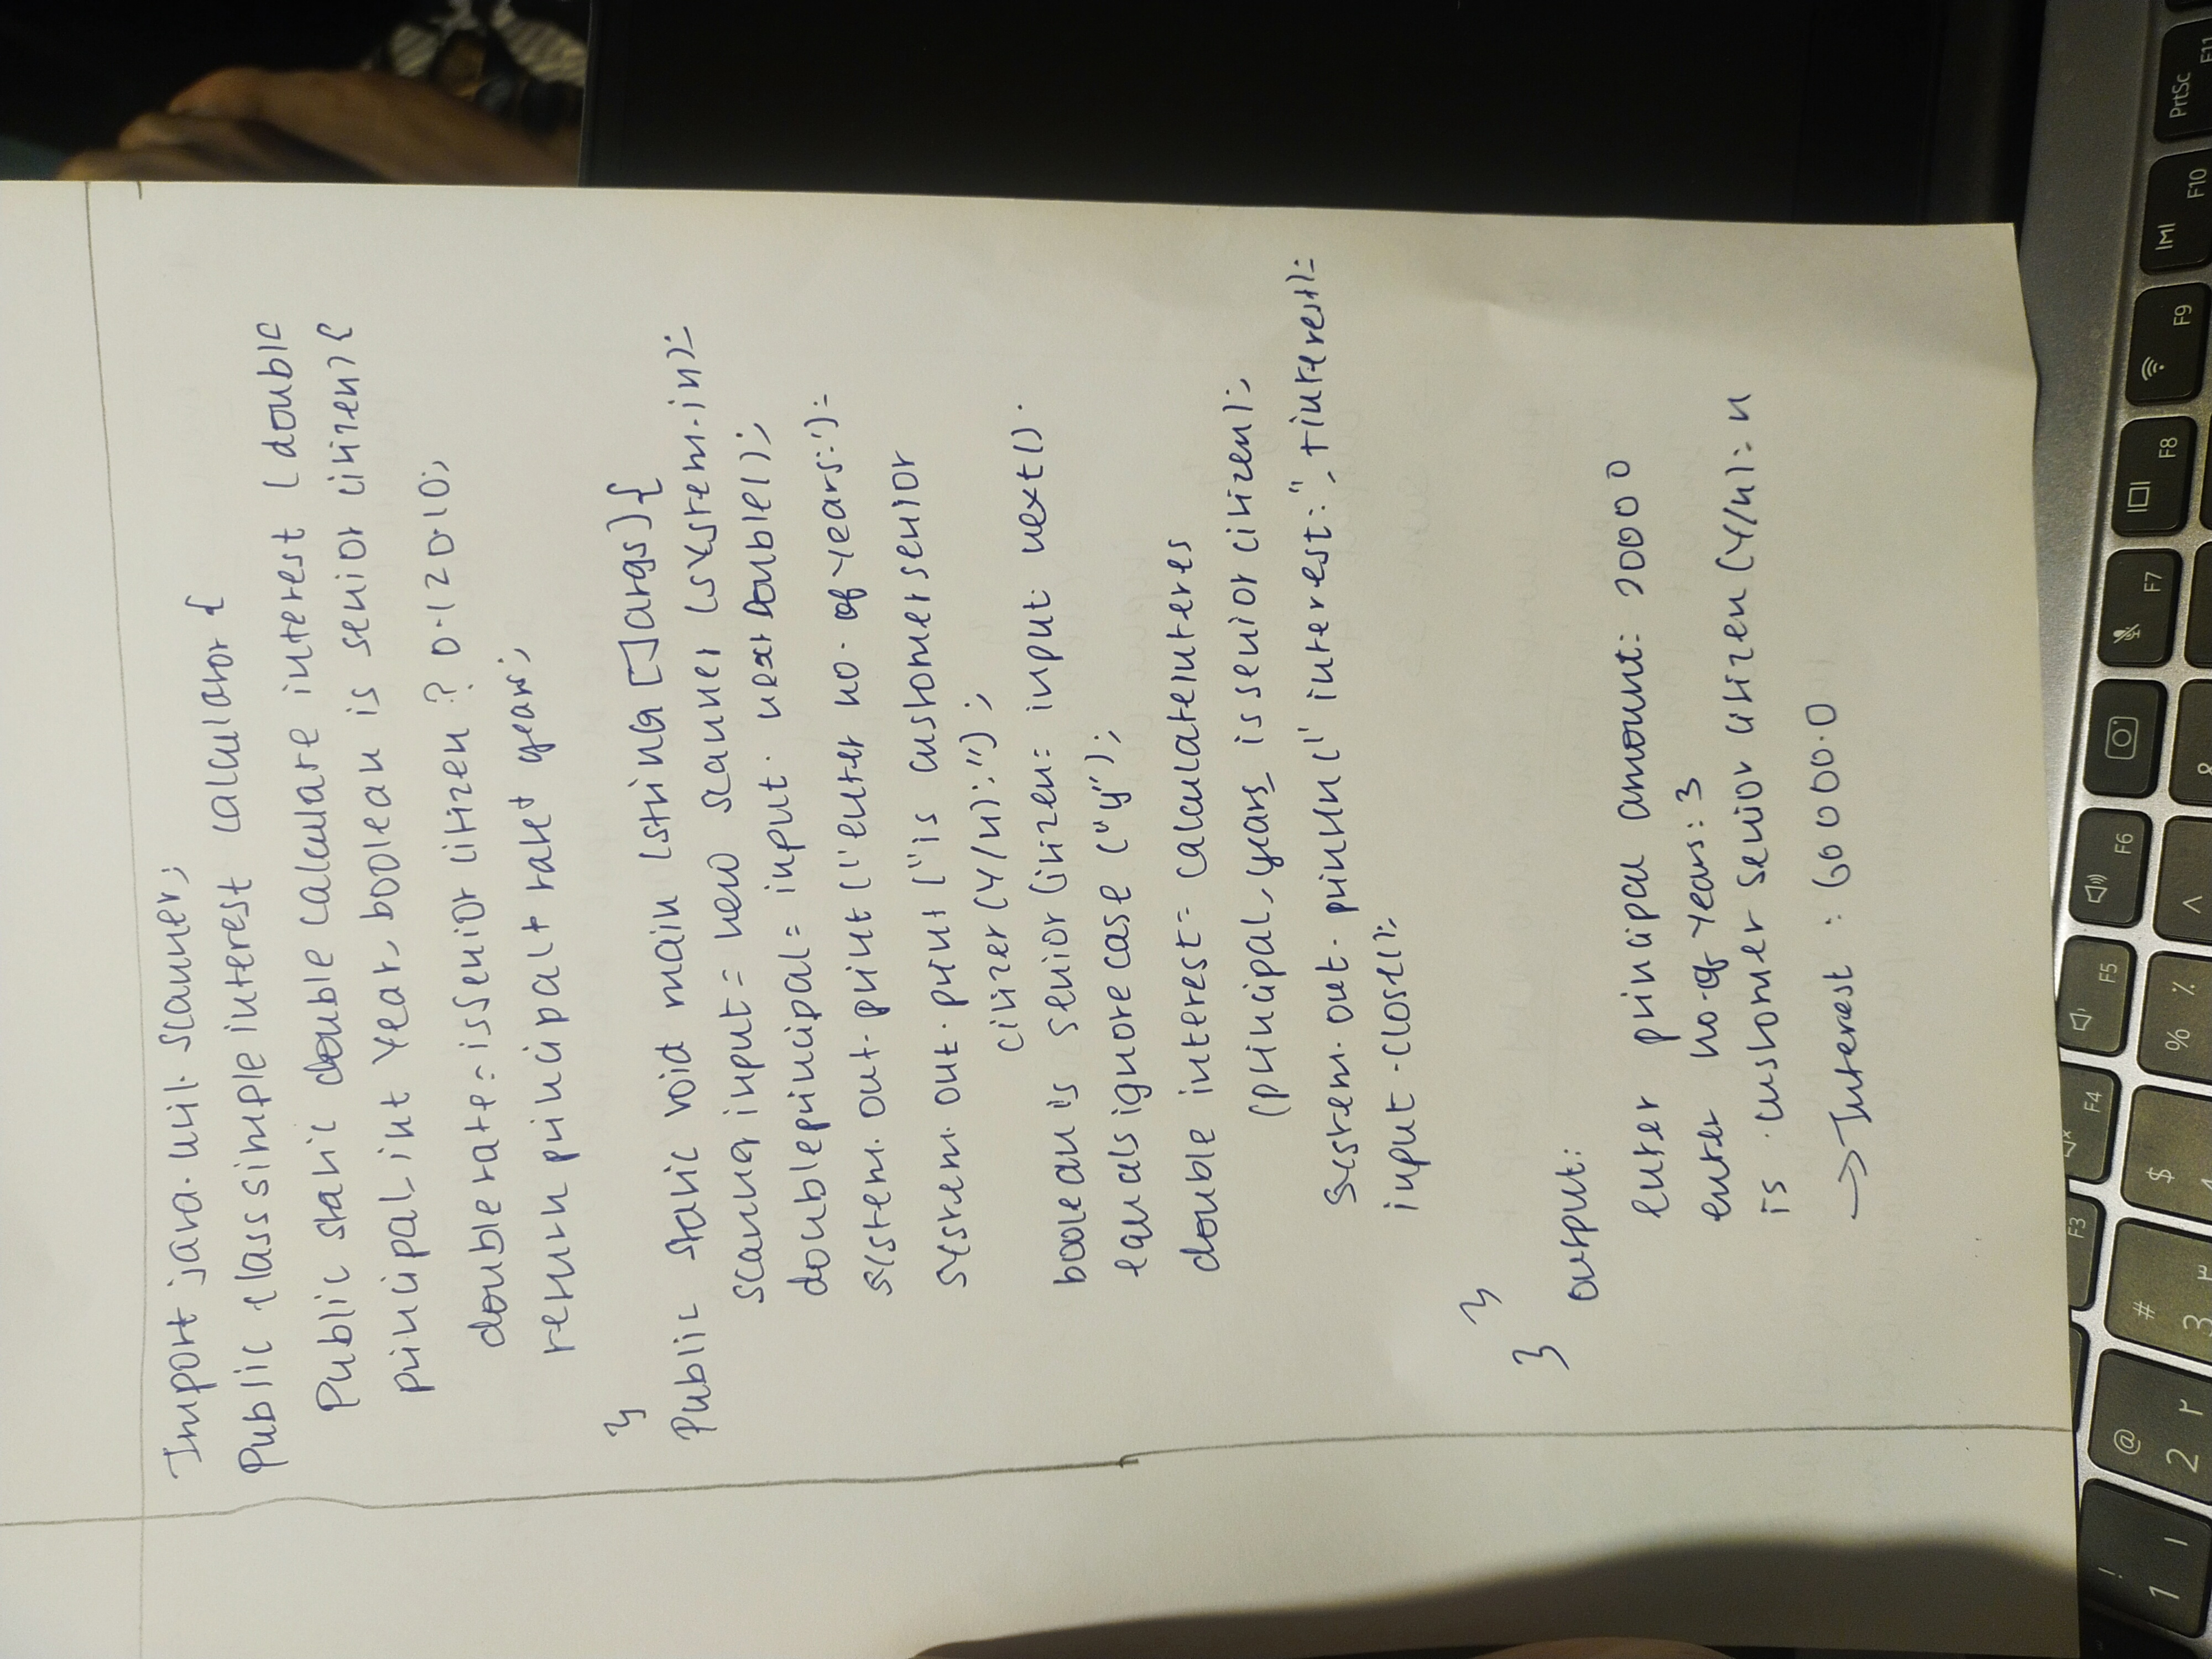 Import java. util. scanner;
Public class simple interest calculator {
Public static double calculate interest ( double
principal, int Year, boolean is senior citizen) {
double rate = is Senior citizen ? 0.12 0.10;
return principal + rate + years;
}
Public static void main (string [] args) {
scanner input = new scanner (system.in);
double principal = input. next Double();
system. out. print ("enter no. of years:");
system. out. print ("is customer senior
citizer (Y/n):") ;
boolean is senior Citizen = input. next().
equals ignore case ("y");
double interest = calculateinteres
(principal, years, is senior citizen);
system. out. println (" interest:", + interest);
input .close();
}
}
output:
enter principal amount: 20000
enter no. of Years: 3
is customer senior citizen (Y/n): n
→ Interest : 60000.0
! 1 ١
@ 2 ٢
# 3 ٣
$
% ٪
^
&
F3
F4
F5
F6
F7
F8
F9
F10
PrtSc F11